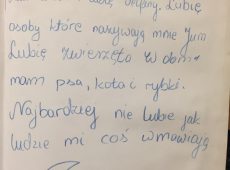 osoby które nazywają mnie Jun
Lubię zwierzęta w dom
mam psa, kota i rybki.
Najbardziej nie lubie jak
ludzie mi coś wmawiają